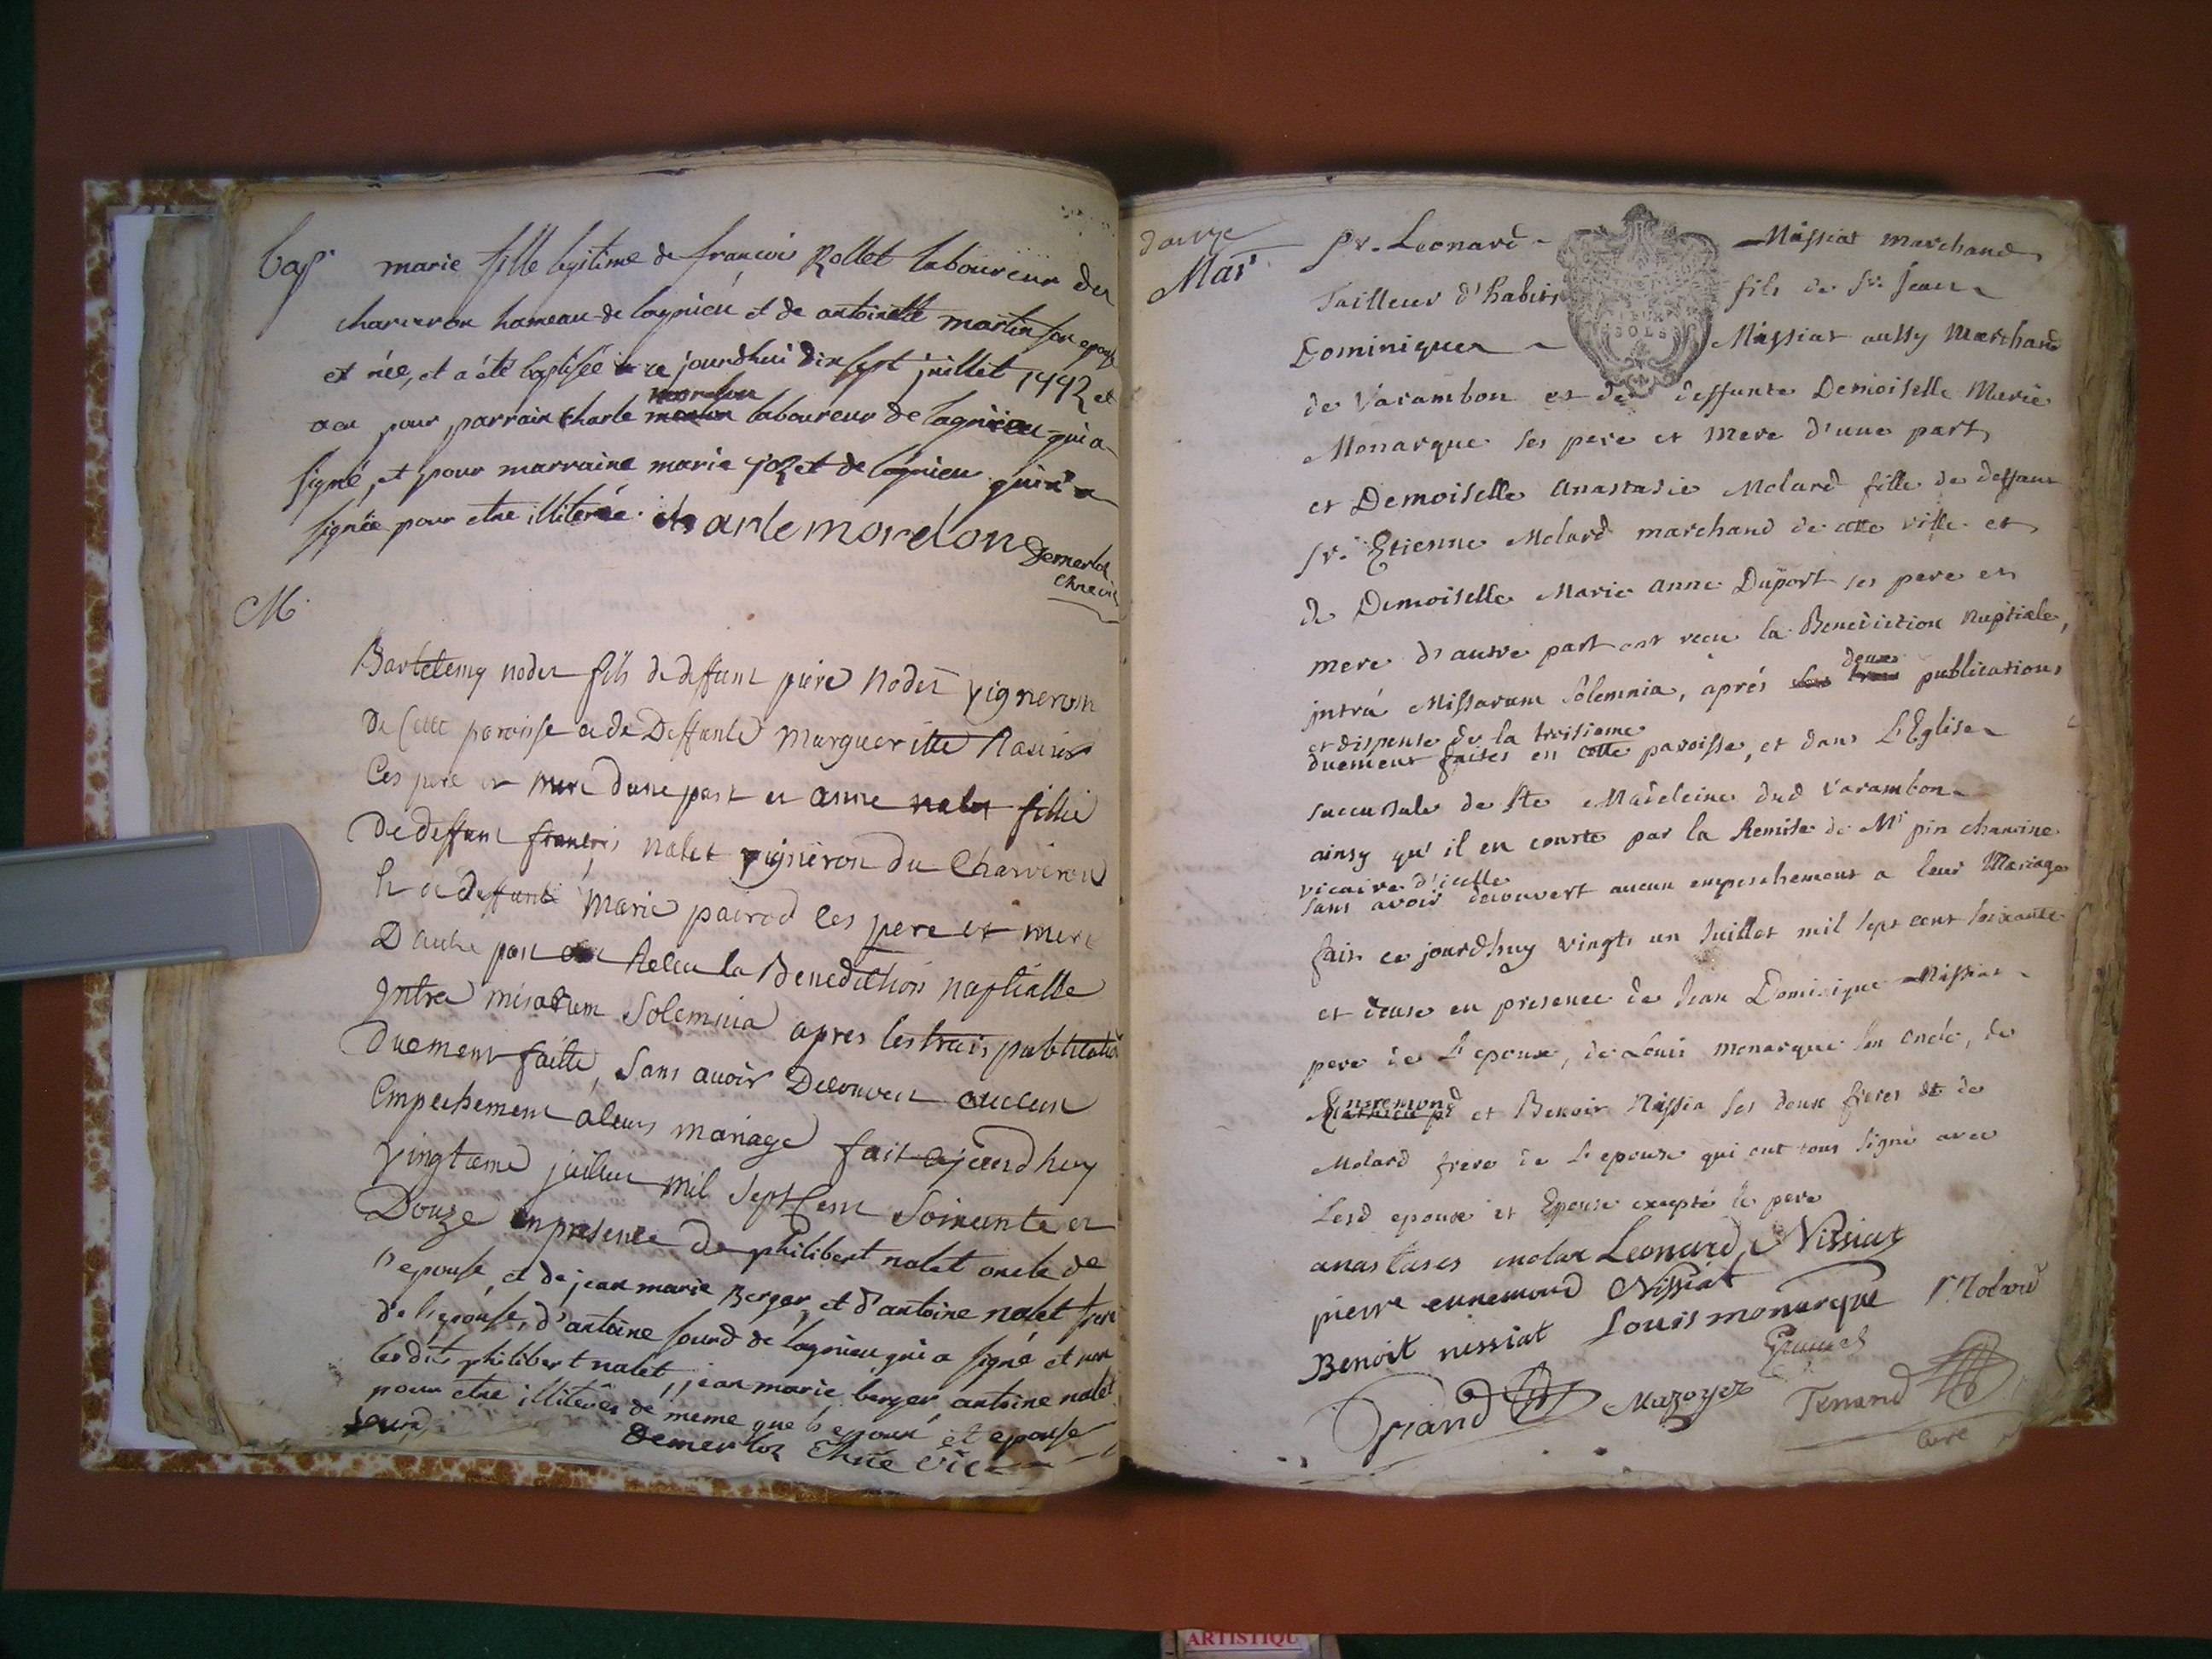 bap.
marie fille legitime de françois Rollet laboureur de
charveron hameau de lagnieu et de antoinette martin son epouse
et née, et a été baptisée ce jourdhui dix sept juillet 1772 et
mordon
a eu pour parrain Charle laboureur de lagnieu qui a
signé, et pour marraine marie de lagnieu qui n'a
signée pour etre illiterée. charle mordon
Demerloz
Chne vic
M.
Bartelemy nodet fils de deffunt piere Nodet vigneron
De Cette paroisse et de Deffunte Margueritte
Ces pere et mere dune part et anne nalet fillie
De deffunt francois nalet vigneron du Charveron
et de deffunte Marie pairod ces pere et mere
Dautre part ont Releu la Benediction naptialle
Intra misarum Solemnia apres les trois publication
Duement faitte, Sans avoir Decouvert auccun
Empechement a leurs mariage fait cejourdhuy
vingtieme juillet mil Sept Cent Soixante et
Douze en presence De philibert nalet oncle de
l'epouse, et de jean marie Berger, et d'antoine nalet frere
de l'epouse, d'antoine sourd de lagnieu qui a signé et non
lesdits philibert nalet, jean marie berger, antoine nalet
pour etre illiterés de meme que les epoux et epouse
sourd demerloz Chne vic
Mar.
Sr. Leonard Missiat marchand
Tailleur d'habits fils de Sr. Jean
SOLS
Dominique Missiat aussy Marchand
de Varambon et de deffunte Demoiselle Marie
Monarque ses pere et Mere d'une part
et Demoiselle Anastasie Molard fille de deffunt
Sr. Etienne Molard marchand de cette ville et
de Demoiselle Marie Anne Duport ses pere et
mere d'autre part ont recu la Benediction Nuptiale,
deux
intrà Missarum solemnia, aprés les trois publications
et dispense de la troisieme
duement faites en cette paroisse, et dans L'Eglise
succursale de Ste Madeleine dud Varambon
ainsy qu'il en conste par la Remise de Mr pin chanoine
vicaire d'icelle
sans avoir decouvert aucun empeschement a leur Mariage
fait ce jourdhuy vingt un Juillet mil sept cent soixante
et douze en presence de Jean Dominique Missiat
pere de L'epoux, de Louis Monarque son oncle, de
Ennemond
et Benoit Nissia ses deux freres et de
Molard frere de L'epouse qui ont tous signé avec
Lesd epoux et Epouse excepté le pere
anastases molar Leonard Nissiat
pierre ennemond Nissiat
Benoit nissiat Louis monarque Molard
Mazoyer Tenand
curé
ARTISTIQU